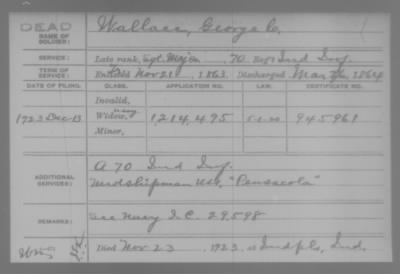 DEAD
NAME OF SOLDIER:
Wallace, George C.
SERVICE:
Late rank, Sgt. Major, 70 Reg't Ind Inf.
TERM OF SERVICE:
Enlisted Nov 21, 1863. Discharged Mar 1864
DATE OF FILING. CLASS. APPLICATION NO. LAW. CERTIFICATE NO.
Invalid,
navy
1923 Dec 13 Widow, 1,214,495 945961
Minor,
ADDITIONAL SERVICES:
A 70 Ind Inf.
Midshipman USN, "Pensacola"
REMARKS:
See Navy I.C. 29,598
Died Nov 23, 1923, at Indpls, Ind.